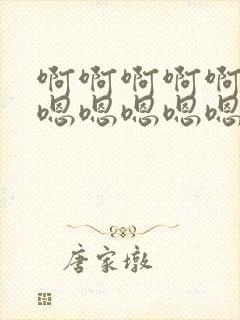 啊啊啊啊啊
嗯嗯嗯嗯嗯
唐家墩